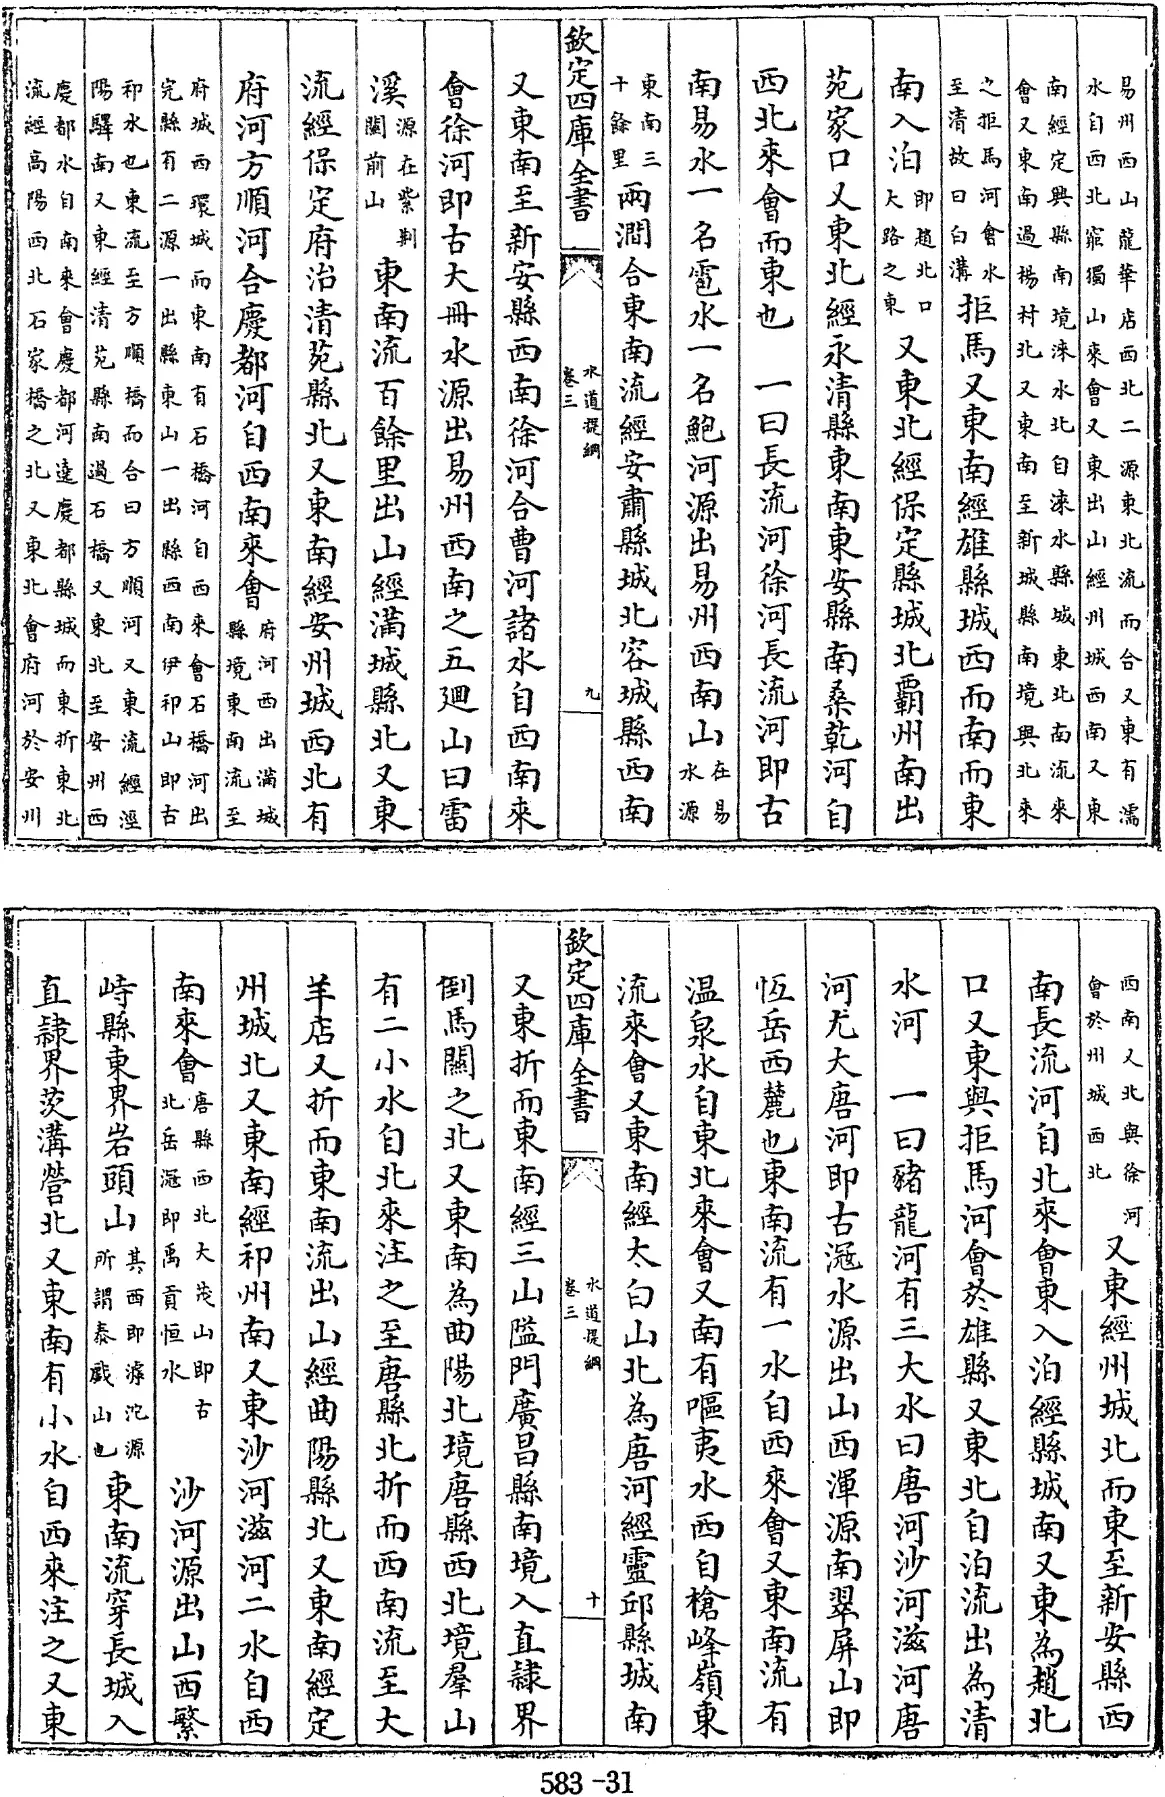 易州西山龍華店西北二源東北流而合又東有濡
水自西北窮獨山來會又東出山經州城西南又東
南經定興縣南境淶水北自淶水縣城東北南流來
會又東南過楊村北又東南至新城縣南境與北來
之拒馬河會水
至清故曰白溝拒馬又東南經雄縣城西而南而東
南入泊即趙北口大路之東又東北經保定縣城北霸州南出
苑家口又東北經永清縣東南東安縣南桑乾河自
西北來會而東也 一曰長流河徐河長流河即古
南易水一名雹水一名鮑河源出易州西南山在易水源
東南三十餘里兩澗合東南流經安肅縣城北容城縣西南
欽定四庫全書
水道提綱
卷三
九
又東南至新安縣西南徐河合曹河諸水自西南來
會徐河即古大冊水源出易州西南之五廻山曰雷
溪源在紫荆關前山東南流百餘里出山經滿城縣北又東
流經保定府治清苑縣北又東南經安州城西北有
府河方順河合慶都河自西南來會府河西出滿城縣境東南流至
府城西環城而東南有石橋河自西來會石橋河出
完縣有二源一出縣東山一出縣西南伊祁山即古
祁水也東流至方順橋而合曰方順河又東流經涇
陽驛南又東經清苑縣南過石橋又東北至安州西
慶都水自南來會慶都河遶慶都縣城而東折東北
流經高陽西北石家橋之北又東北會府河於安川
西南又北與徐河
會於州城西北又東經州城北而東至新安縣西
南長流河自北來會東入泊經縣城南又東為趙北
口又東與拒馬河會於雄縣又東北自泊流出為清
水河 一曰豬龍河有三大水曰唐河沙河滋河唐
河尤大唐河即古滱水源出山西渾源南翠屏山即
恆岳西麓也東南流有一水自西來會又東南流有
温泉水自東北來會又南有嘔夷水西自槍峰嶺東
流來會又東南經太白山北為唐河經靈邱縣城南
欽定四庫全書
水道提綱
卷三
十
又東折而東南經三山隘門廣昌縣南境入直隸界
倒馬關之北又東南為曲陽北境唐縣西北境羣山
有二小水自北來注之至唐縣北折而西南流至大
羊店又折而東南流出山經曲陽縣北又東南經定
州城北又東南經祁州南又東沙河滋河二水自西
南來會唐縣西北大茂山即古北岳滱即禹貢恒水 沙河源出山西繁
峙縣東界岩頭山其西即滹沱源所謂泰戲山也東南流穿長城入
直隸界茨溝營北又東南有小水自西來注之又東
583-31